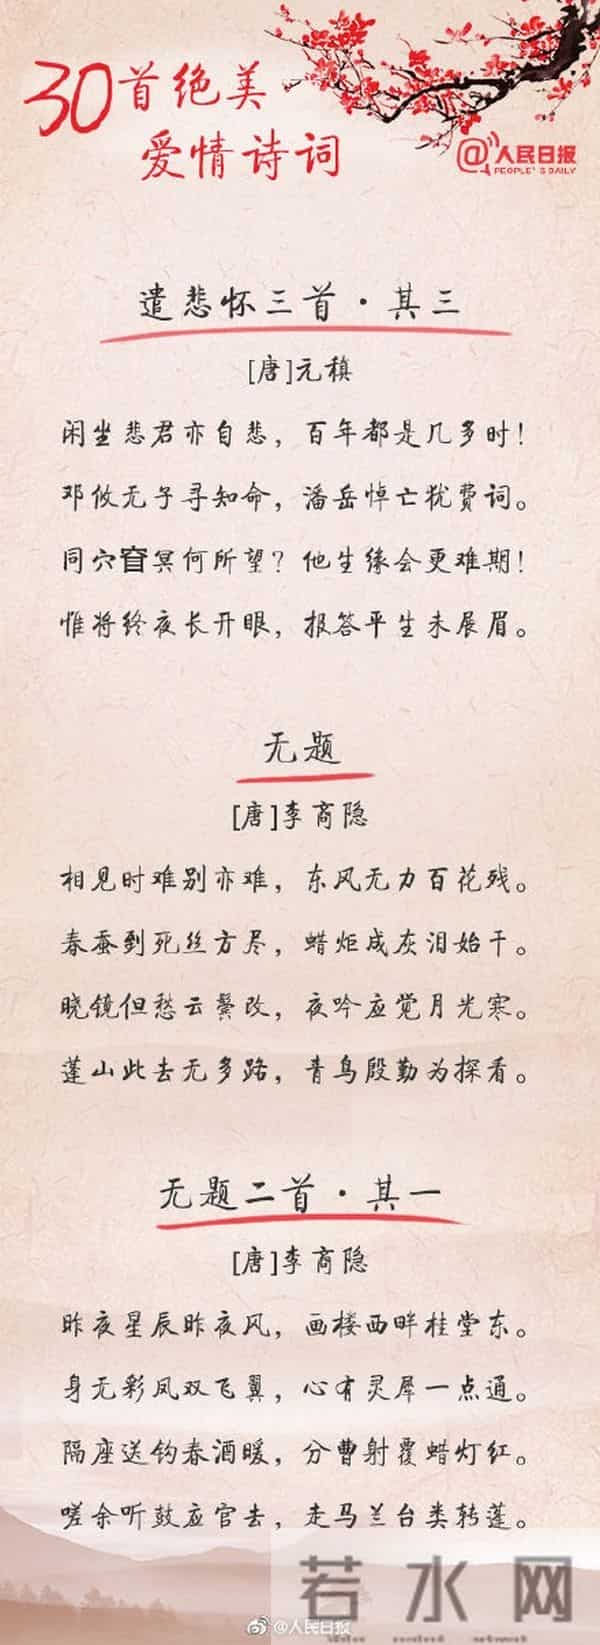 30首绝美
爱情诗词
@人民日报
PEOPLE'S DAILY
遣悲怀三首·其三
[唐]元稹
闲坐悲君亦自悲，百年都是几多时！
邓攸无子寻知命，潘岳悼亡犹费词。
同穴窅冥何所望？他生缘会更难期！
惟将终夜长开眼，报答平生未展眉。
无题
[唐]李商隐
相见时难别亦难，东风无力百花残。
春蚕到死丝方尽，蜡炬成灰泪始干。
晓镜但愁云鬓改，夜吟应觉月光寒。
蓬山此去无多路，青鸟殷勤为探看。
无题二首·其一
[唐]李商隐
昨夜星辰昨夜风，画楼西畔桂堂东。
身无彩凤双飞翼，心有灵犀一点通。
隔座送钩春酒暖，分曹射覆蜡灯红。
嗟余听鼓应官去，走马兰台类转蓬。
若水网
@人民日报